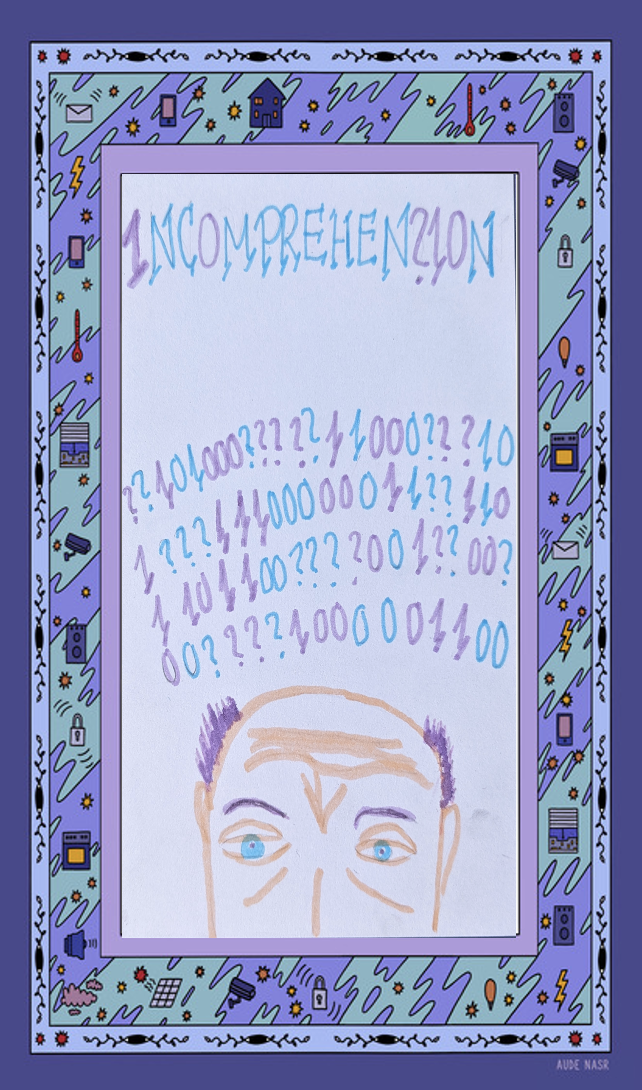 1NCOMPREHEN?10N
??101000?????11000???10
1???11100000011??110
1101100????001??00?
00????1000001100
AUDE NASR